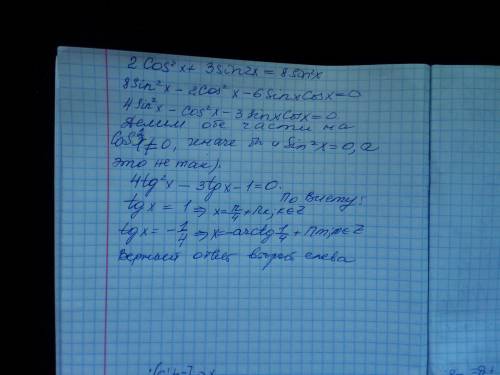 2 Cos²x + 3 Sin2x = 8 Sin²x
8Sin²x - 2Cos²x - 6SinxCosx = 0
4Sin²x - Cos²x - 3SinxCosx = 0
Делим обе части на
Cos²x ≠ 0, иначе и Sin²x = 0, а
это не так).
4tg²x - 3tgx - 1 = 0.
По Виету:
tgx = 1 ⇒ x = π/4 + πk, k∈Z
tgx = -1/4 ⇒ x = -arctg 1/4 + πn, n∈Z
Верный ответ второй слева